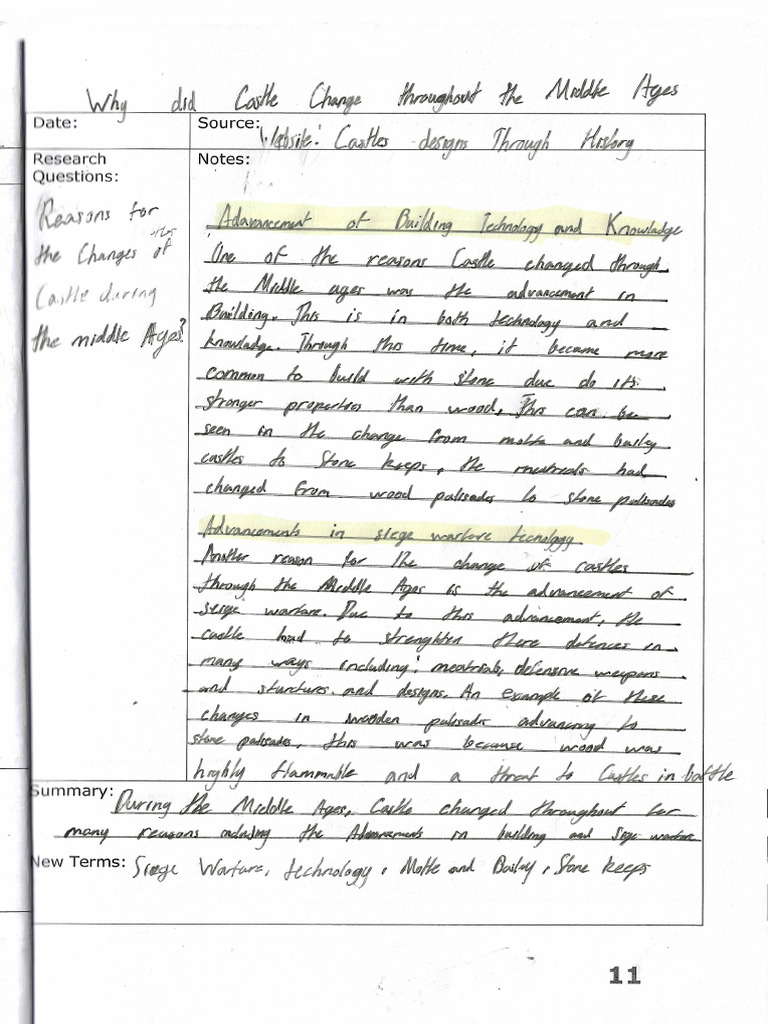 Why did Castle Change throughout the Middle Ages
Date:
Source:
Website: Castles designs Through History
Research
Questions:
Notes:
Reasons for
the Changes of
Castle during
the middle Ages?
Adavancement of Building Technology and Knowladge
One of the reasons Castle changed through
the Middle ages was the advancement in
Building. This is in both technology and
knowladge. Through this time, it became more
common to build with stone due do its
stronger properties than wood. This can be
seen in the change from motte and bailey
castles to stone keeps, the meatrials had
changed from wood palisades to stone palisades
Advancements in siege warfare tecnology
Another reason for the change of castles
through the Middle Ages is the advancement of
seige warfare. Due to this advancement, the
castle had to strenghten there defences in
many ways including: meatrials, defensive weapons
and sturctures and designs. An example of these
changes in wooden palisades advancing to
stone palisades, this was because wood was
highly flammable and a threat to Castles in battle
Summary:
During the Middle Ages, Castle changed throughout for
many reasons including the Advancements in building and Siege warfare
New Terms: Siege Warfare, technology, Motte and Bailey, Stone keeps
11